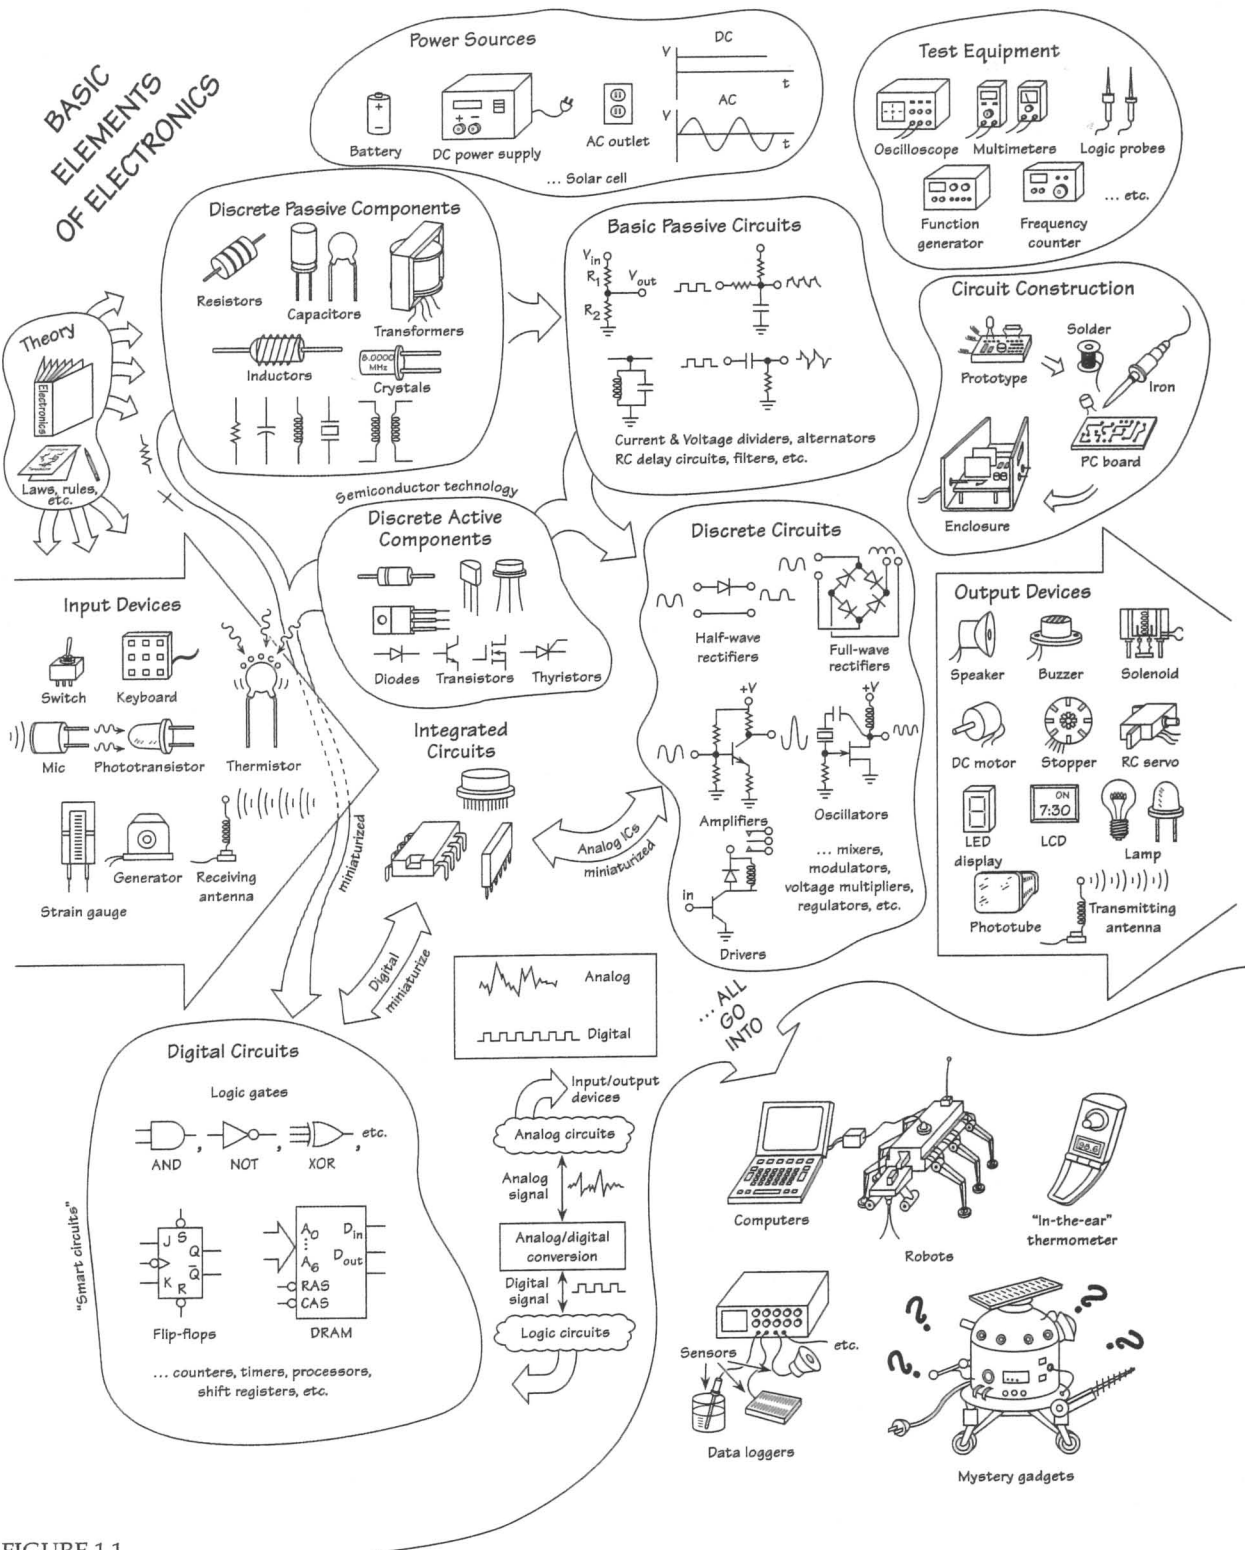 BASIC
ELEMENTS
OF ELECTRONICS
Power Sources
Battery
DC power supply
AC outlet
... Solar cell
V
DC
t
V
AC
t
Test Equipment
Oscilloscope
Multimeters
Logic probes
Function
generator
Frequency
counter
... etc.
Discrete Passive Components
Resistors
Capacitors
Transformers
Inductors
8.0000
MHz
Crystals
Basic Passive Circuits
Vin
R1
Vout
R2
Current & Voltage dividers, alternators
RC delay circuits, filters, etc.
Circuit Construction
Prototype
Solder
Iron
PC board
Enclosure
Theory
Electronics
Laws, rules,
etc.
Semiconductor technology
Discrete Active
Components
Diodes
Transistors
Thyristors
Discrete Circuits
Half-wave
rectifiers
Full-wave
rectifiers
+V
+V
Amplifiers
Oscillators
in
Drivers
... mixers,
modulators,
voltage multipliers,
regulators, etc.
Input Devices
Switch
Keyboard
Mic
Phototransistor
Thermistor
Strain gauge
Generator
Receiving
antenna
miniaturized
Integrated
Circuits
Analog ICs
miniaturized
Digital
miniaturize
Output Devices
Speaker
Buzzer
Solenoid
DC motor
Stopper
RC servo
LED
display
ON
7:30
LCD
Lamp
Phototube
Transmitting
antenna
Analog
Digital
... ALL
GO
INTO
Digital Circuits
Logic gates
AND
,
NOT
,
XOR
,
etc.
"Smart circuits"
J
S
Q
K
R
Q̅
Flip-flops
A0
⋮
A6
RAS
CAS
Din
Dout
DRAM
... counters, timers, processors,
shift registers, etc.
Input/output
devices
Analog circuits
Analog
signal
Analog/digital
conversion
Digital
signal
Logic circuits
Computers
Robots
"In-the-ear"
thermometer
Sensors
etc.
Data loggers
? ? ? ?
Mystery gadgets
FIGURE 1.1